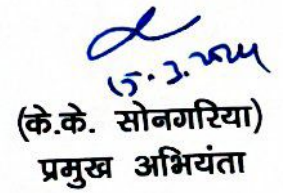 15.3.2024
(के.के. सोनगरिया)
प्रमुख अभियंता